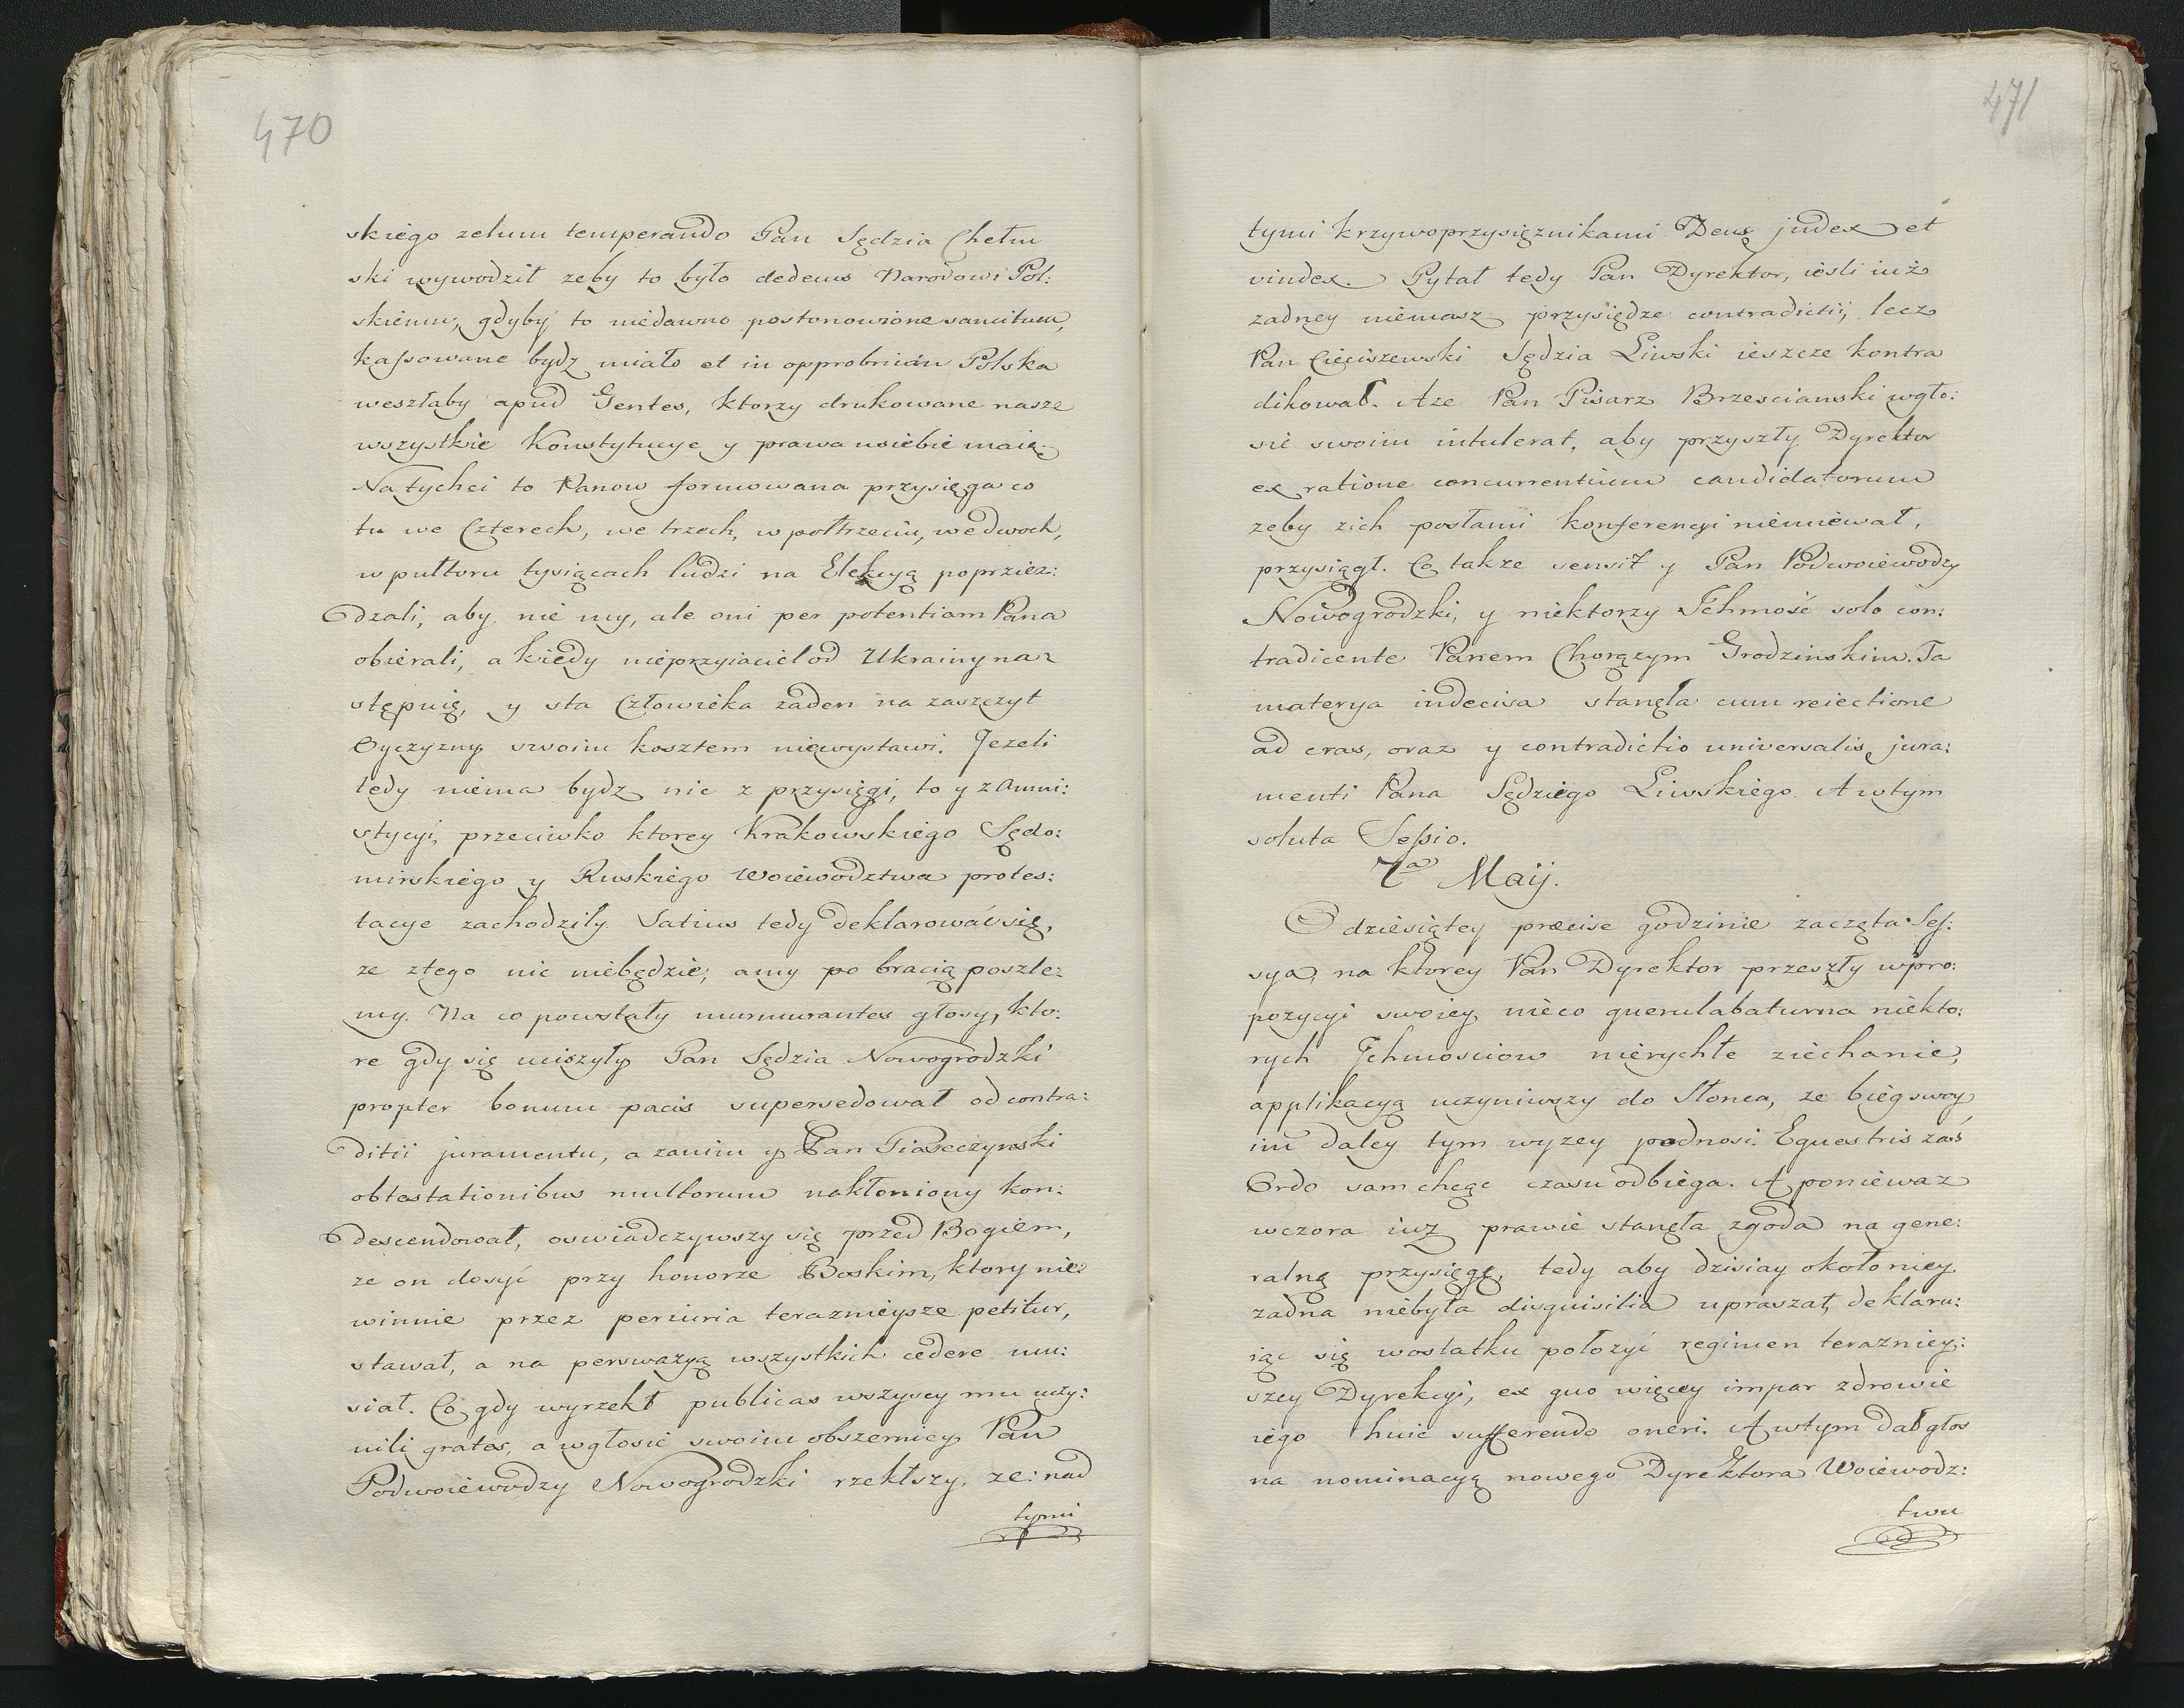 470
skiego zelum temperando Pan Sędzia Chełm
ski wywodził zeby to było dedecus Narodowi Pol:
skiemu, gdyby to niedawno postonowione sancitum,
kassowane bydz miało et in opprobrium Polska
weszłaby apud Gentes, ktorzy drukowane nasze
wszystkie Konstytucye y prawa usiebie maią.
Na tychci to Panow formowana przysięga co
tu we Czterech, we trzech, w połtrzeciu, we dwoch,
w pułtoru tysiącach ludzi na Elekcyą poprziez:
dzali, aby nie my, ale oni per potentiam Pana
obierali, a kiedy nieprzyiaciel od Ukrainy na:
stępuię, y sta Człowieka zaden na zaszczyt
Oyczyzny swoim kosztem niewystawi. Jezeli
tedy niema bydz nic z przysięgi, to y z Amni:
stycyi, przeciwko ktorey Krakowskiego Sędo:
mirskiego y Ruskiego Woiewodztwa protes:
tacye zachodziły. Satius tedy deklarować się,
ze ztego nic niebędzie; amy po bracią poszle:
my. Na co powstały murmurantes głosy, kto:
re gdy się uciszyły Pan Sędzia Nowogrodzki
propter bonum pacis supersedował od contra:
ditii juramentu, a zanim y Pan Piaseczynski
obtestationibus multorum nakłoniony kon:
descendował, oswiadczywszy się przed Bogiem,
ze on dosyć przy honorze Boskim, ktory nie:
winnie przez periuria teraznieysze petitur,
stawał, a na perswazyą wszystkich cedere mu:
siał. Co gdy wyrzekł publicas wszyscy mu uczy:
nili grates, a wgłosie swoim obszerniey Pan
Podwoiewodzy Nowogrodzki rzekłszy, ze: nad
tymi
471
tymi krzywoprzysięznikami Deus judex et
vindex. Pytał tedy Pan Dyrektor, iesli iuż
zadney niemasz przysiędze contradictii, lecz
Pan Cieciszewski Sędzia Liwski ieszcze kontra
dikował. Aze Pan Pisarz Brzescianski wgło:
sie swoim intulerat, aby przyszły Dyrektor
ex ratione concurrentium candidatorum
zeby zich posłami konferencyi niemiewał,
przysiągł. Co takze sensit y Pan Podwoiewodzy
Nowogrodzki, y niektorzy Jchmość solo con:
tradicente Panem Chorązym Grodzinskim. Ta
materya indecisa stanęła cum reiectione
ad cras, oraz y contradictio universalis jura:
menti Pana Sędziego Liwskiego. A wtym
soluta Sessio.
7a Maij.
O dziesiątey præcise godzinie zaczęta Ses:
sya, na ktorey Pan Dyrektor przeszły w pro:
pozycyi swoiey, nieco querulabatur na niekto:
rych Jchmosciow nierychłe ziechanie,
applikacyą uczyniwszy do Słonca, ze bieg swoy
im daley tym wyzey podnosi. Equestris zaś
Ordo sam chęąc czasu odbiega. A poniewaz
wczora iuz prawie stanęła zgoda na gene:
ralną przysięgę, tedy aby dzisiay około niey
zadna niebyła disquisitia upraszał, deklaru:
iąc się w ostatku położyć regimen terazniey:
szey Dyrekcyi, ex quo więcey impar zdrowie
iego huic sufferendo oneri. A wtym dał głos
na nominacyą nowego Dyrektora Woiewodz:
twu